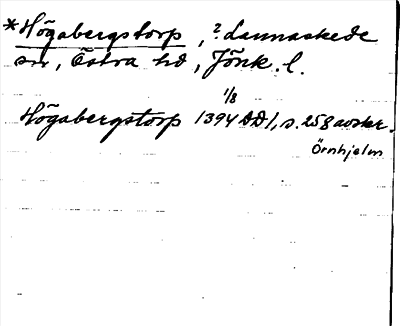 *Högabergstorp, ? Lannaskede
sn, Östra hd, Jönk. l.
1/8
Högabergstorp 1394 DD 1, s. 258 avskr.
Örnhjelm